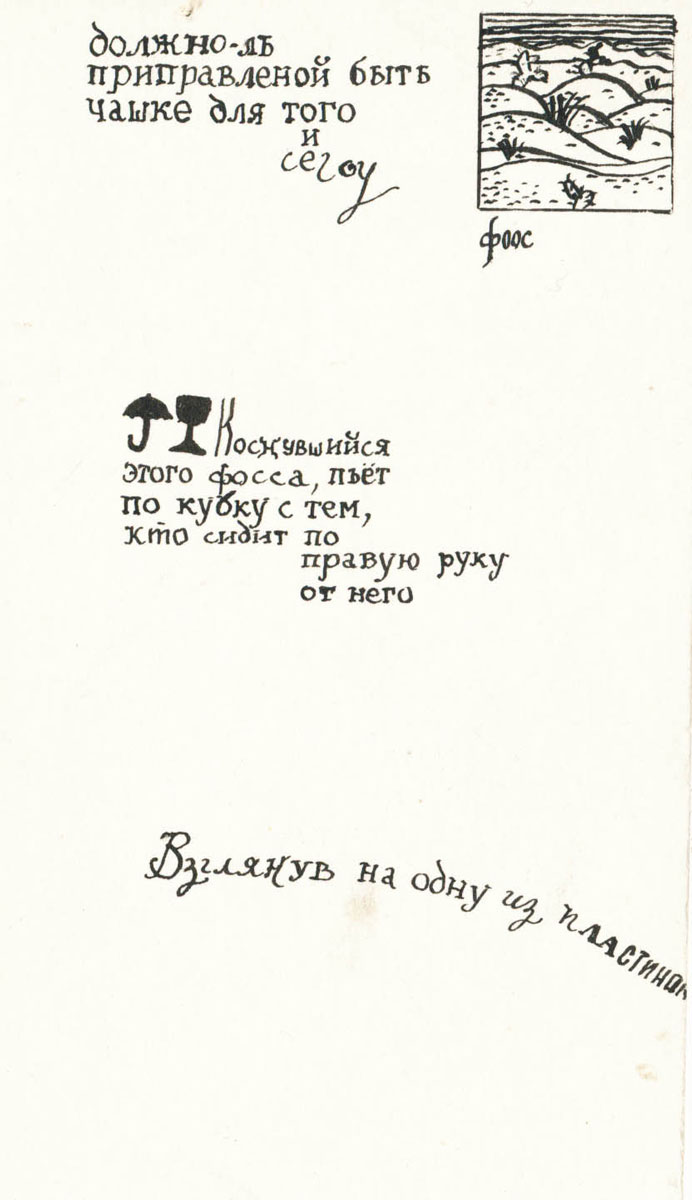 должно-ль
приправленой быть
чашке для того
и
сегоу
фоос
Коснувшийся
этого фосса, пьёт
по кубку с тем,
кто сидит по
правую руку
от него
Взглянув на одну из пластинок